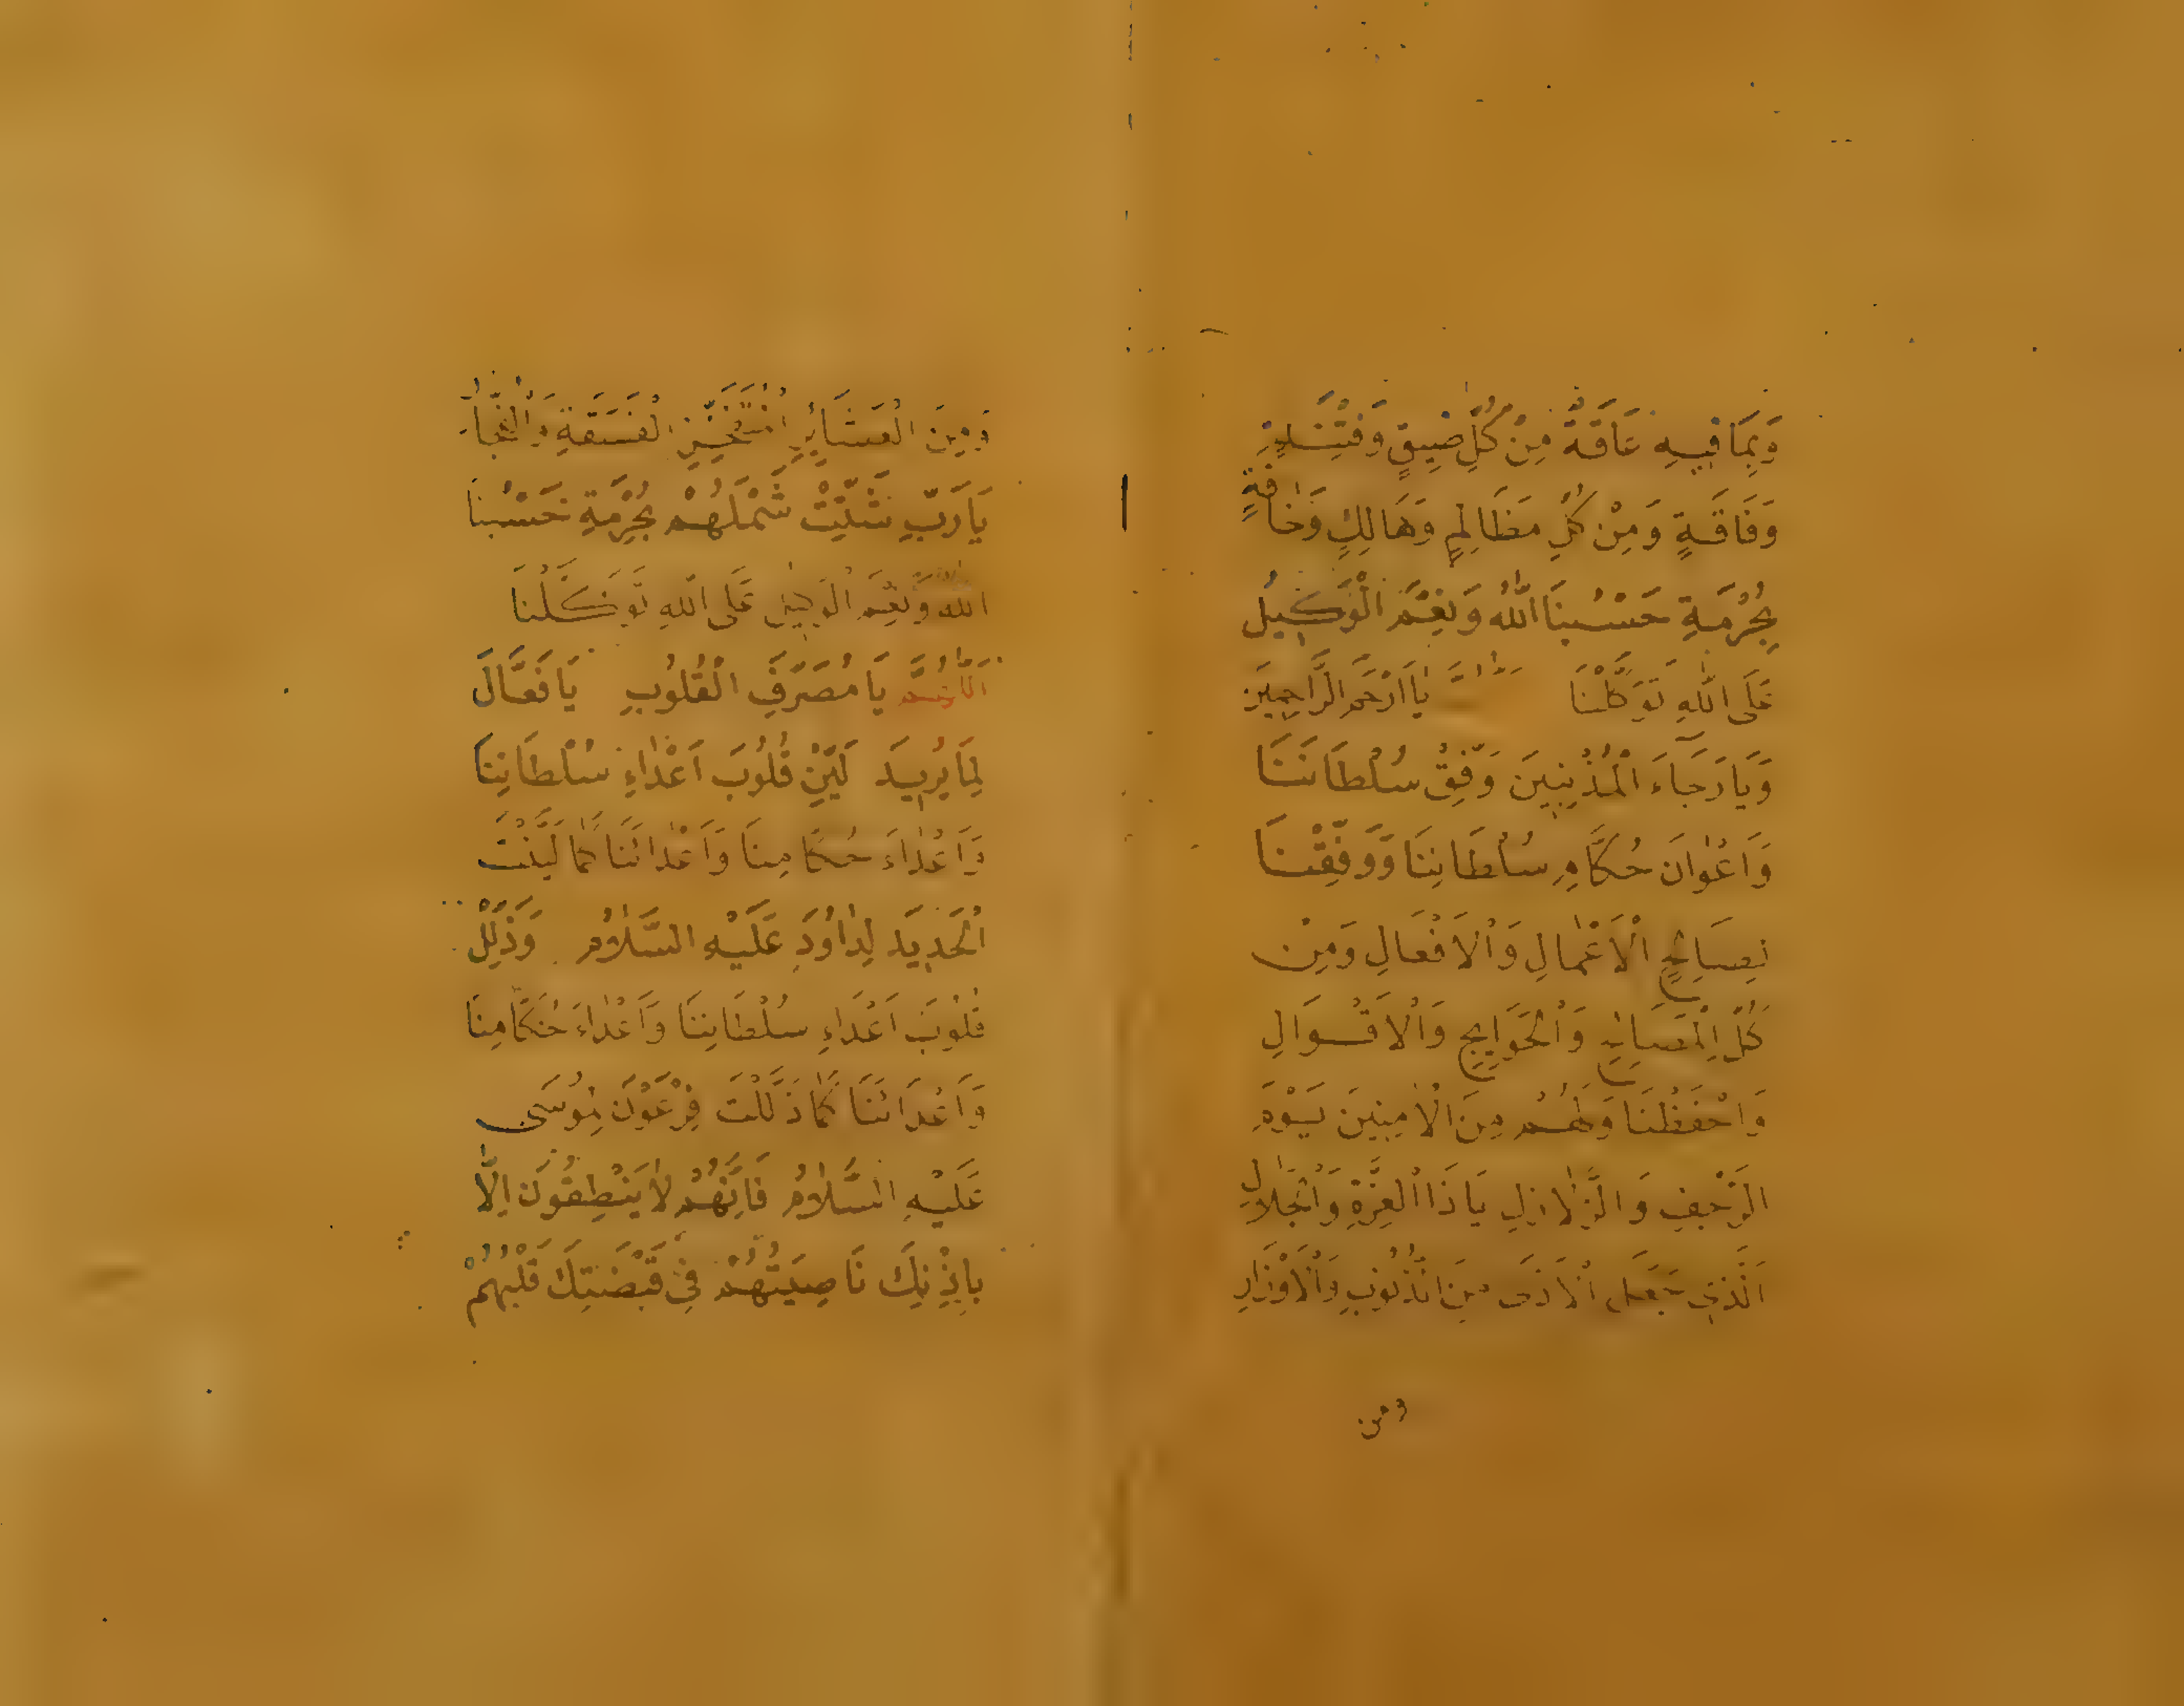 وَبِمَا فِيهِ عَاقَةٌ مِنْ كُلِّ ضِيقٍ وَفِتْنَةٍ
وَفَاقَةٍ وَمِنْ كُلِّ مَظَالِمٍ وَهَالِكٍ وَمَخَافَةٍ
بِحُرْمَةِ حَسْبُنَا اللّٰهُ وَنِعْمَ الْوَكِيلُ
عَلَى اللّٰهِ تَوَكَّلْنَا يَا اَرْحَمَ الرَّاحِمِينَ
وَيَا رَجَاءَ الْمُذْنِبِينَ وَفِّقْ سُلْطَانَنَا
وَاَعْوَانَ حُكَّامِ سُلْطَانِنَا وَوَفِّقْنَا
بِصَالِحِ الْاَعْمَالِ وَالْاَفْعَالِ وَمِنْ
كُلِّ الْمَصَالِحِ وَالْحَوَايِجِ وَالْاَقْوَالِ
وَاحْفَظْنَا وَلَهُمْ مِنَ الْاٰمِنِينَ يَوْمَ
الرَّجْفِ وَالزَّلَازِلِ يَا ذَا الْعِزَّةِ وَالْجَلَالِ
الَّذِي جَعَلَ الْاَذَى مِنَ الذُّنُوبِ وَالْاَوْزَارِ
ومن
وَمِنَ الْعَشَائِرِ الْفَسَقَةِ وَالْفُجَّارِ
يَا رَبِّ شَتِّتْ شَمْلَهُمْ بِحُرْمَةِ حَسْبُنَا
اللّٰهُ وَنِعْمَ الْوَكِيلُ عَلَى اللّٰهِ تَوَكَّلْنَا
اَللّٰهُمَّ يَا مُصَرِّفَ الْقُلُوبِ يَا فَعَّالَ
لِمَا يُرِيدَ لَيِّنْ قُلُوبَ اَعْدَاءِ سُلْطَانِنَا
وَاَعْدَاءَ حُكَّامِنَا وَاَعْدَائَنَا كَمَا لَيَّنْتَ
الْحَدِيدَ لِدَاوُدَ عَلَيْهِ السَّلَامُ وَذَلِّلْ
قُلُوبَ اَعْدَاءِ سُلْطَانِنَا وَاَعْدَاءَ حُكَّامِنَا
وَاَعْدَائَنَا كَمَا ذَلَّلْتَ فِرْعَوْنَ لِمُوسَى
عَلَيْهِ السَّلَامُ فَاِنَّهُمْ لَا يَنْطِقُونَ اِلَّا
بِاِذْنِكَ نَاصِيَتُهُمْ فِي قَبْضَتِكَ قَلْبُهُمْ